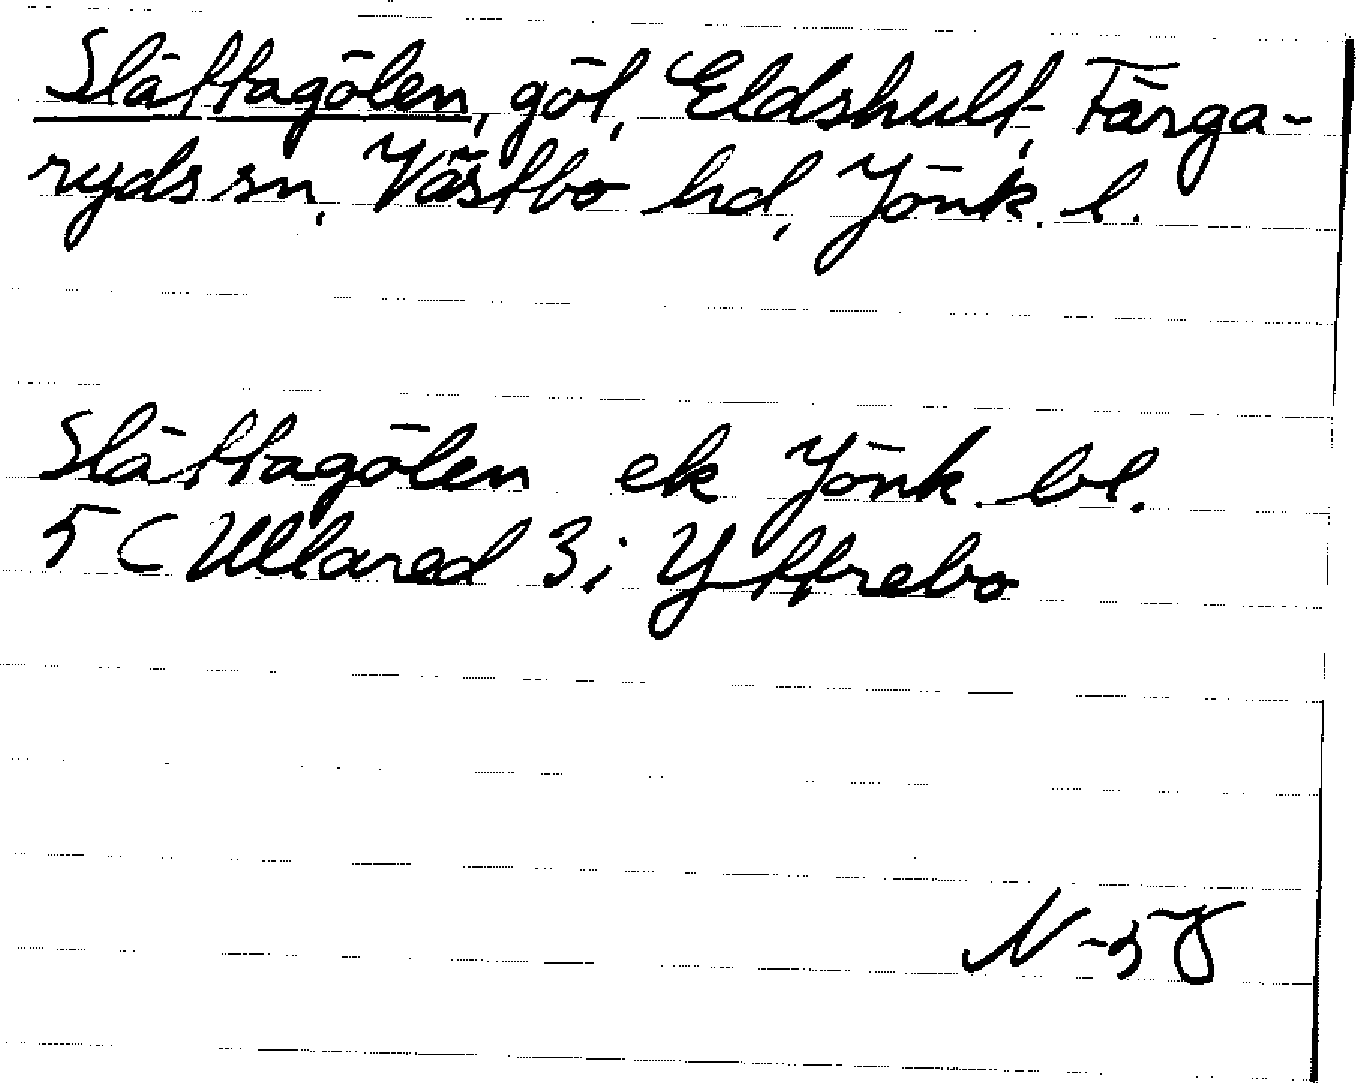 Slättagölen, göl, Eldshult, Färga-
ryds sn, Västbo hd, Jönk. l.
Slättagölen ek Jönk. bl.
5 (Ullared 3; Yttrebo
N-58